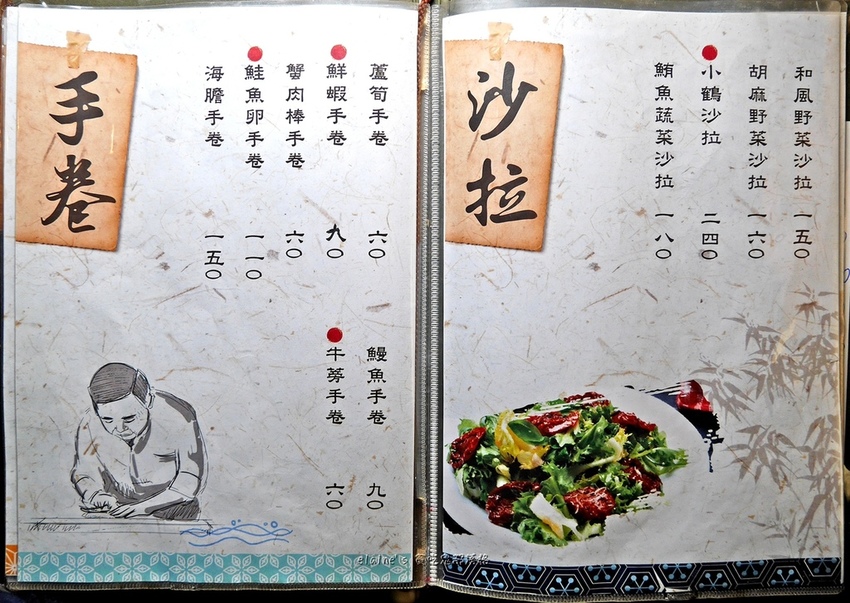 手卷
蘆筍手卷 六〇
鮮蝦手卷 九〇
蟹肉棒手卷 六〇
鮭魚卵手卷 一一〇
海膽手卷 一五〇
鰻魚手卷 九〇
牛蒡手卷 六〇
沙拉
和風野菜沙拉 一五〇
胡麻野菜沙拉 一六〇
小鶴沙拉 二四〇
鮪魚蔬菜沙拉 一八〇